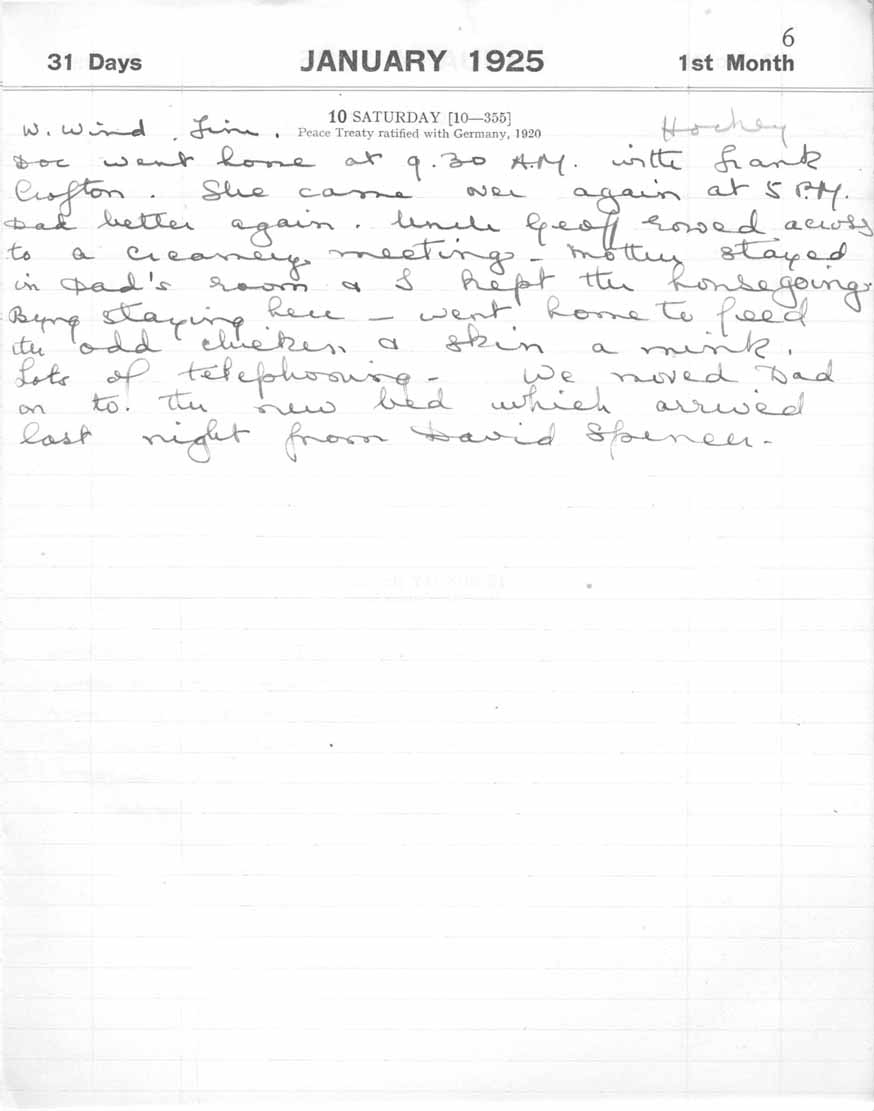 6
31 Days JANUARY 1925 1st Month
10 SATURDAY [10—355]
W. Wind. Fine. Peace Treaty ratified with Germany, 1920 Hockey
Doc went home at 9.30 A.M. with Frank
Crofton. She came over again at 5 P.M.
Dad better again. Uncle Geoff rowed across
to a creamery meeting - Mother stayed
in Dad's room & I kept the house going.
Byng staying here - went home to feed
the odd chicken & skin a mink.
Lots of telephoning - We moved Dad
on to. the new bed which arrived
last night from David Spencer -